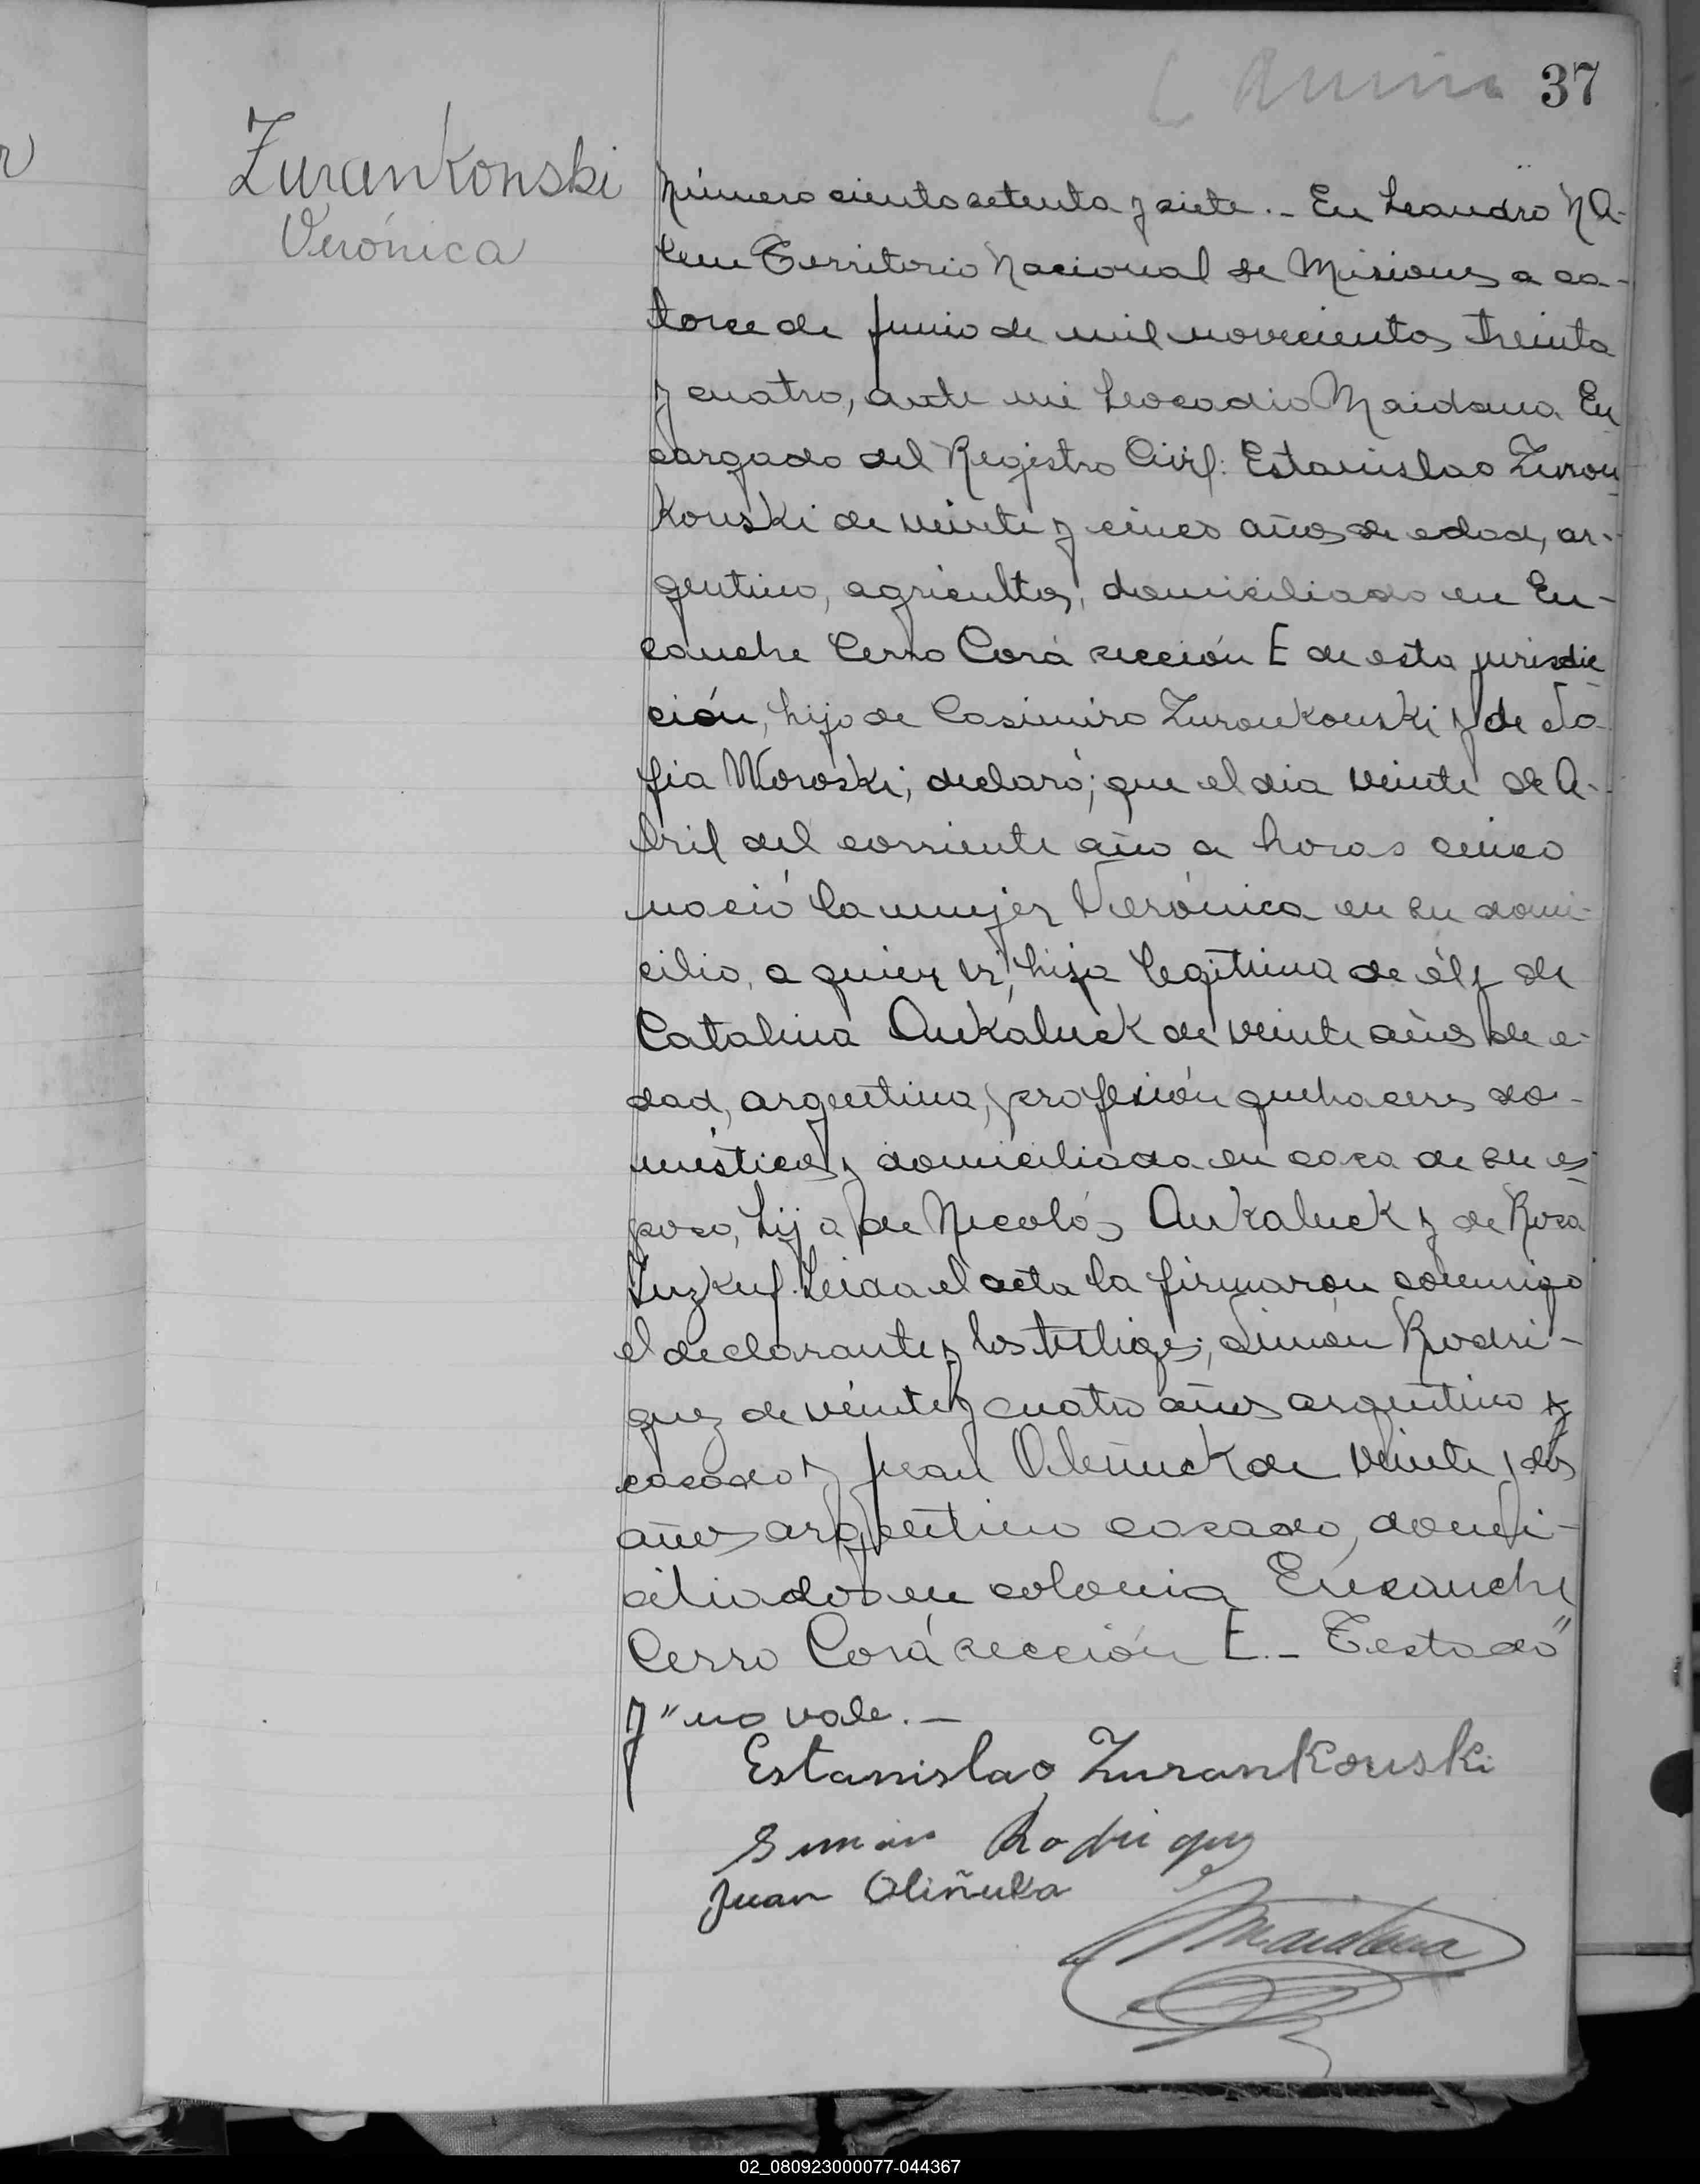 37
Zurankonski
Verónica
Número ciento setenta y siete.- En Leandro N A-
lem Territorio Nacional de Misiones a ca-
torce de junio de mil novecientos treinta
y cuatro, ante mi Leocadio Maidana En
cargado del Registro Civil: Estanislao Zuran
kouski de veinte y cinco años de edad, ar-
gentino, agricultor, domiciliado en En-
sanche Cerro Corá sección E de esta jurisdic
ción, hijo de Casimiro Zurankouski y de So
fia Woroski; declaró; que el dia veinte de A-
bril del corriente año a horas cinco
nació la mujer Verónica en su domi-
cilio, a quien vi, hija legítima de él y de
Catalina Aukaluck de veinte años de e-
dad, argentina, profesión quehaceres do-
mésticos y domiciliada en casa de su es
poso, hija de Nicolás Aukaluck y de Rosa
Leida el acta la firmaron conmigo
el declarante y los testigos; Simón Rodri-
guez de veinte y cuatro años argentino y
casado y Juan Oleñuck de veinte y dos
años argentino casado, domi-
ciliados en colonia Ensanche
Cerro Corá sección E.- Testado"
y" no vale.-
Estanislao Zurankouski
Simón Rodriguez
Juan Oliñuka
Maidana
02_080923000077-044367